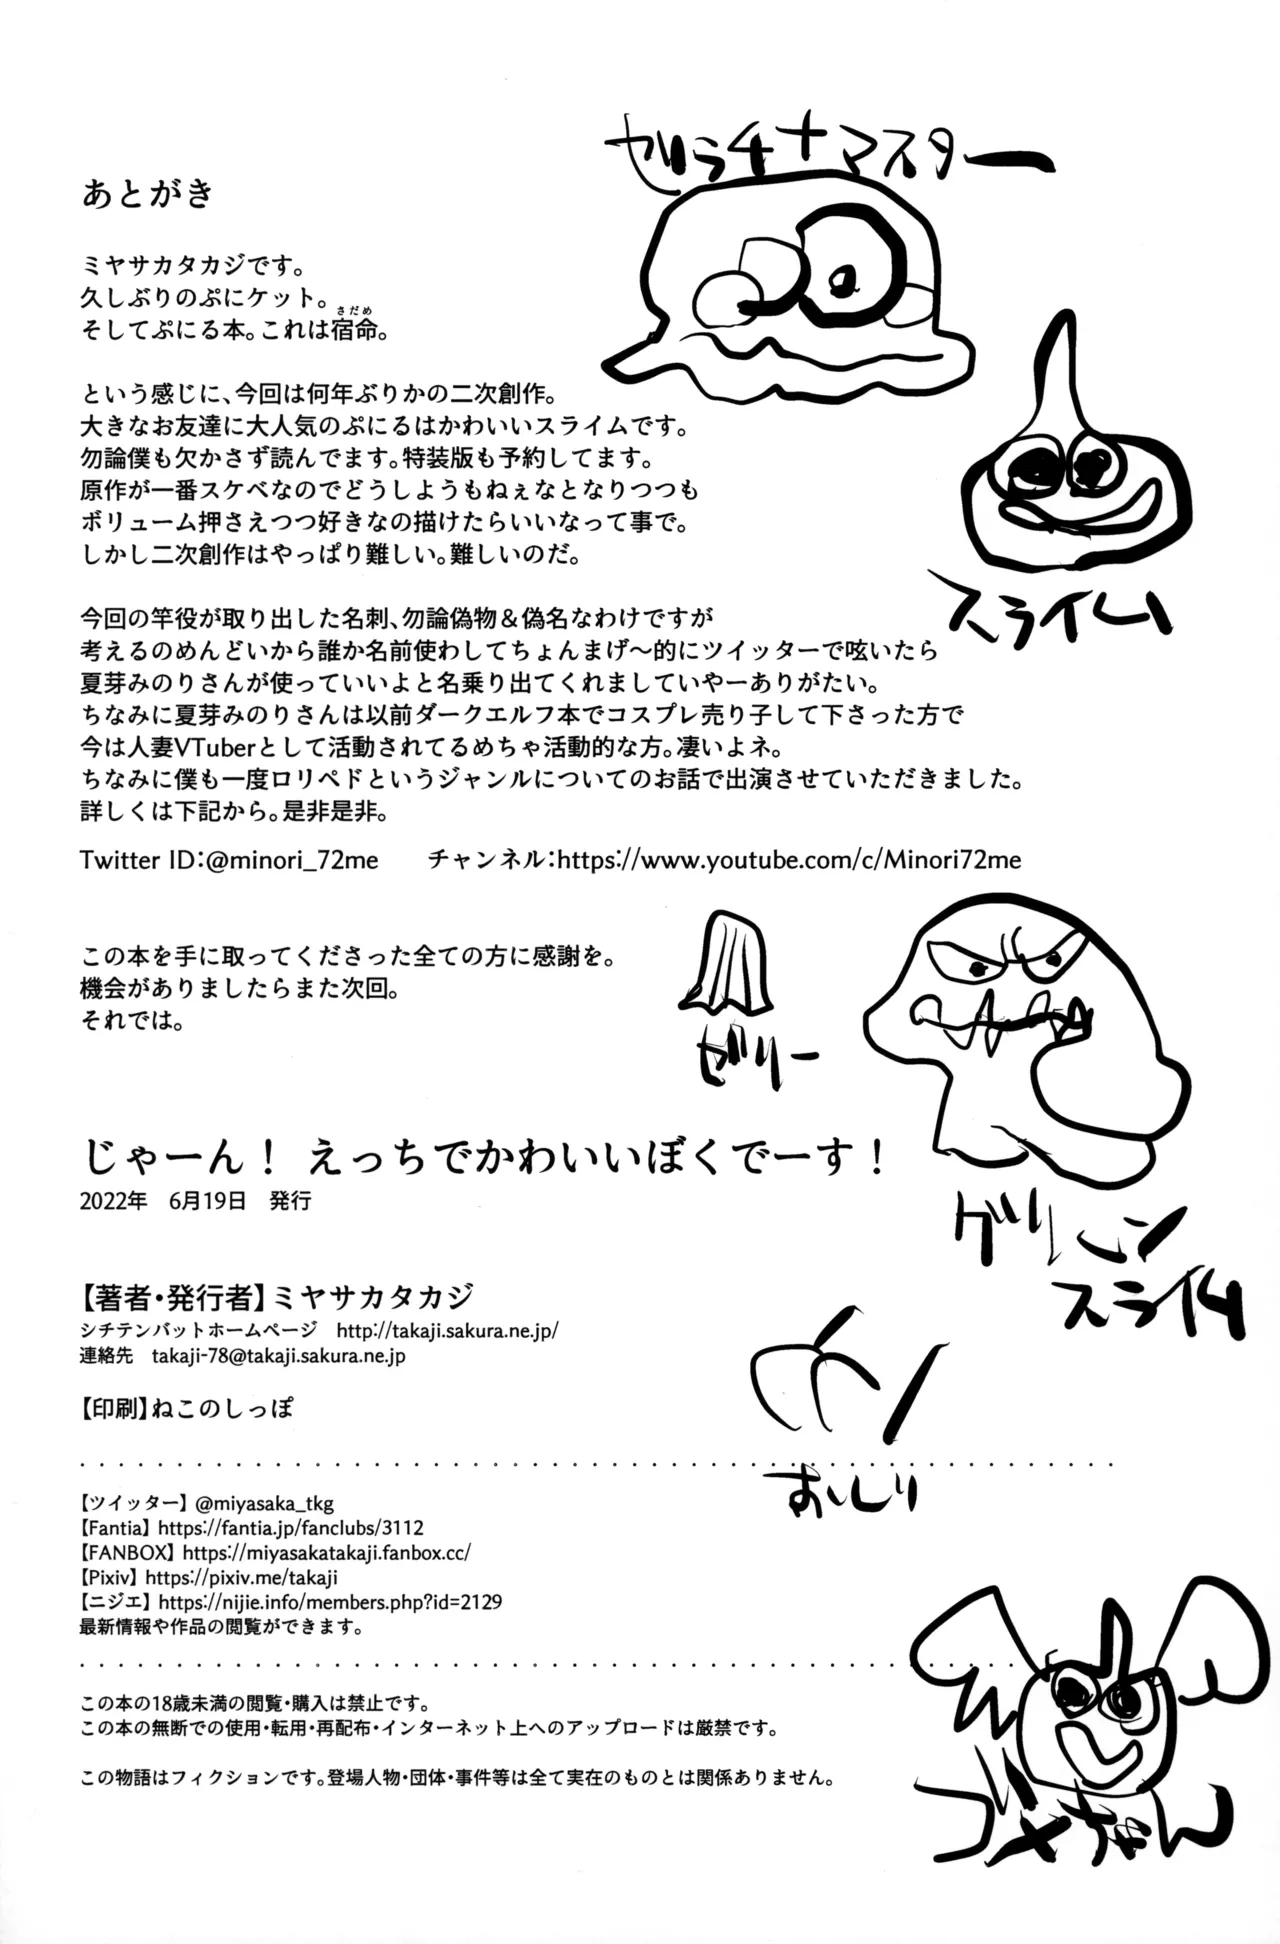 ゼリラチナマスター
あとがき
ミヤサカタカジです。
久しぶりのぷにケット。
そしてぷにる本。これは宿命。
さだめ
という感じに、今回は何年ぶりかの二次創作。
大きなお友達に大人気のぷにるはかわいいスライムです。
勿論僕も欠かさず読んでます。特装版も予約してます。
原作が一番スケベなのでどうしようもねぇなとなりつつも
ボリューム押さえつつ好きなの描けたらいいなって事で。
しかし二次創作はやっぱり難しい。難しいのだ。
スライム
今回の竿役が取り出した名刺、勿論偽物＆偽名なわけですが
考えるのめんどいから誰か名前使わしてちょんまげ～的にツイッターで呟いたら
夏芽みのりさんが使っていいよと名乗り出てくれましていやーありがたい。
ちなみに夏芽みのりさんは以前ダークエルフ本でコスプレ売り子して下さった方で
今は人妻VTuberとして活動されてるめちゃ活動的な方。凄いよネ。
ちなみに僕も一度ロリペドというジャンルについてのお話で出演させていただきました。
詳しくは下記から。是非是非。
Twitter ID：@minori_72me　　チャンネル：https://www.youtube.com/c/Minori72me
この本を手に取ってくださった全ての方に感謝を。
機会がありましたらまた次回。
それでは。
ゼリー
グリーン
スライム
じゃーん！ えっちでかわいいぼくでーす！
2022年　6月19日　発行
【著者・発行者】ミヤサカタカジ
シチテンバットホームページ　http://takaji.sakura.ne.jp/
連絡先　takaji-78@takaji.sakura.ne.jp
【印刷】ねこのしっぽ
おしり
【ツイッター】@miyasaka_tkg
【Fantia】https://fantia.jp/fanclubs/3112
【FANBOX】https://miyasakatakaji.fanbox.cc/
【Pixiv】https://pixiv.me/takaji
【ニジエ】https://nijie.info/members.php?id=2129
最新情報や作品の閲覧ができます。
この本の18歳未満の閲覧・購入は禁止です。
この本の無断での使用・転用・再配布・インターネット上へのアップロードは厳禁です。
この物語はフィクションです。登場人物・団体・事件等は全て実在のものとは関係ありません。
ゴメちゃん